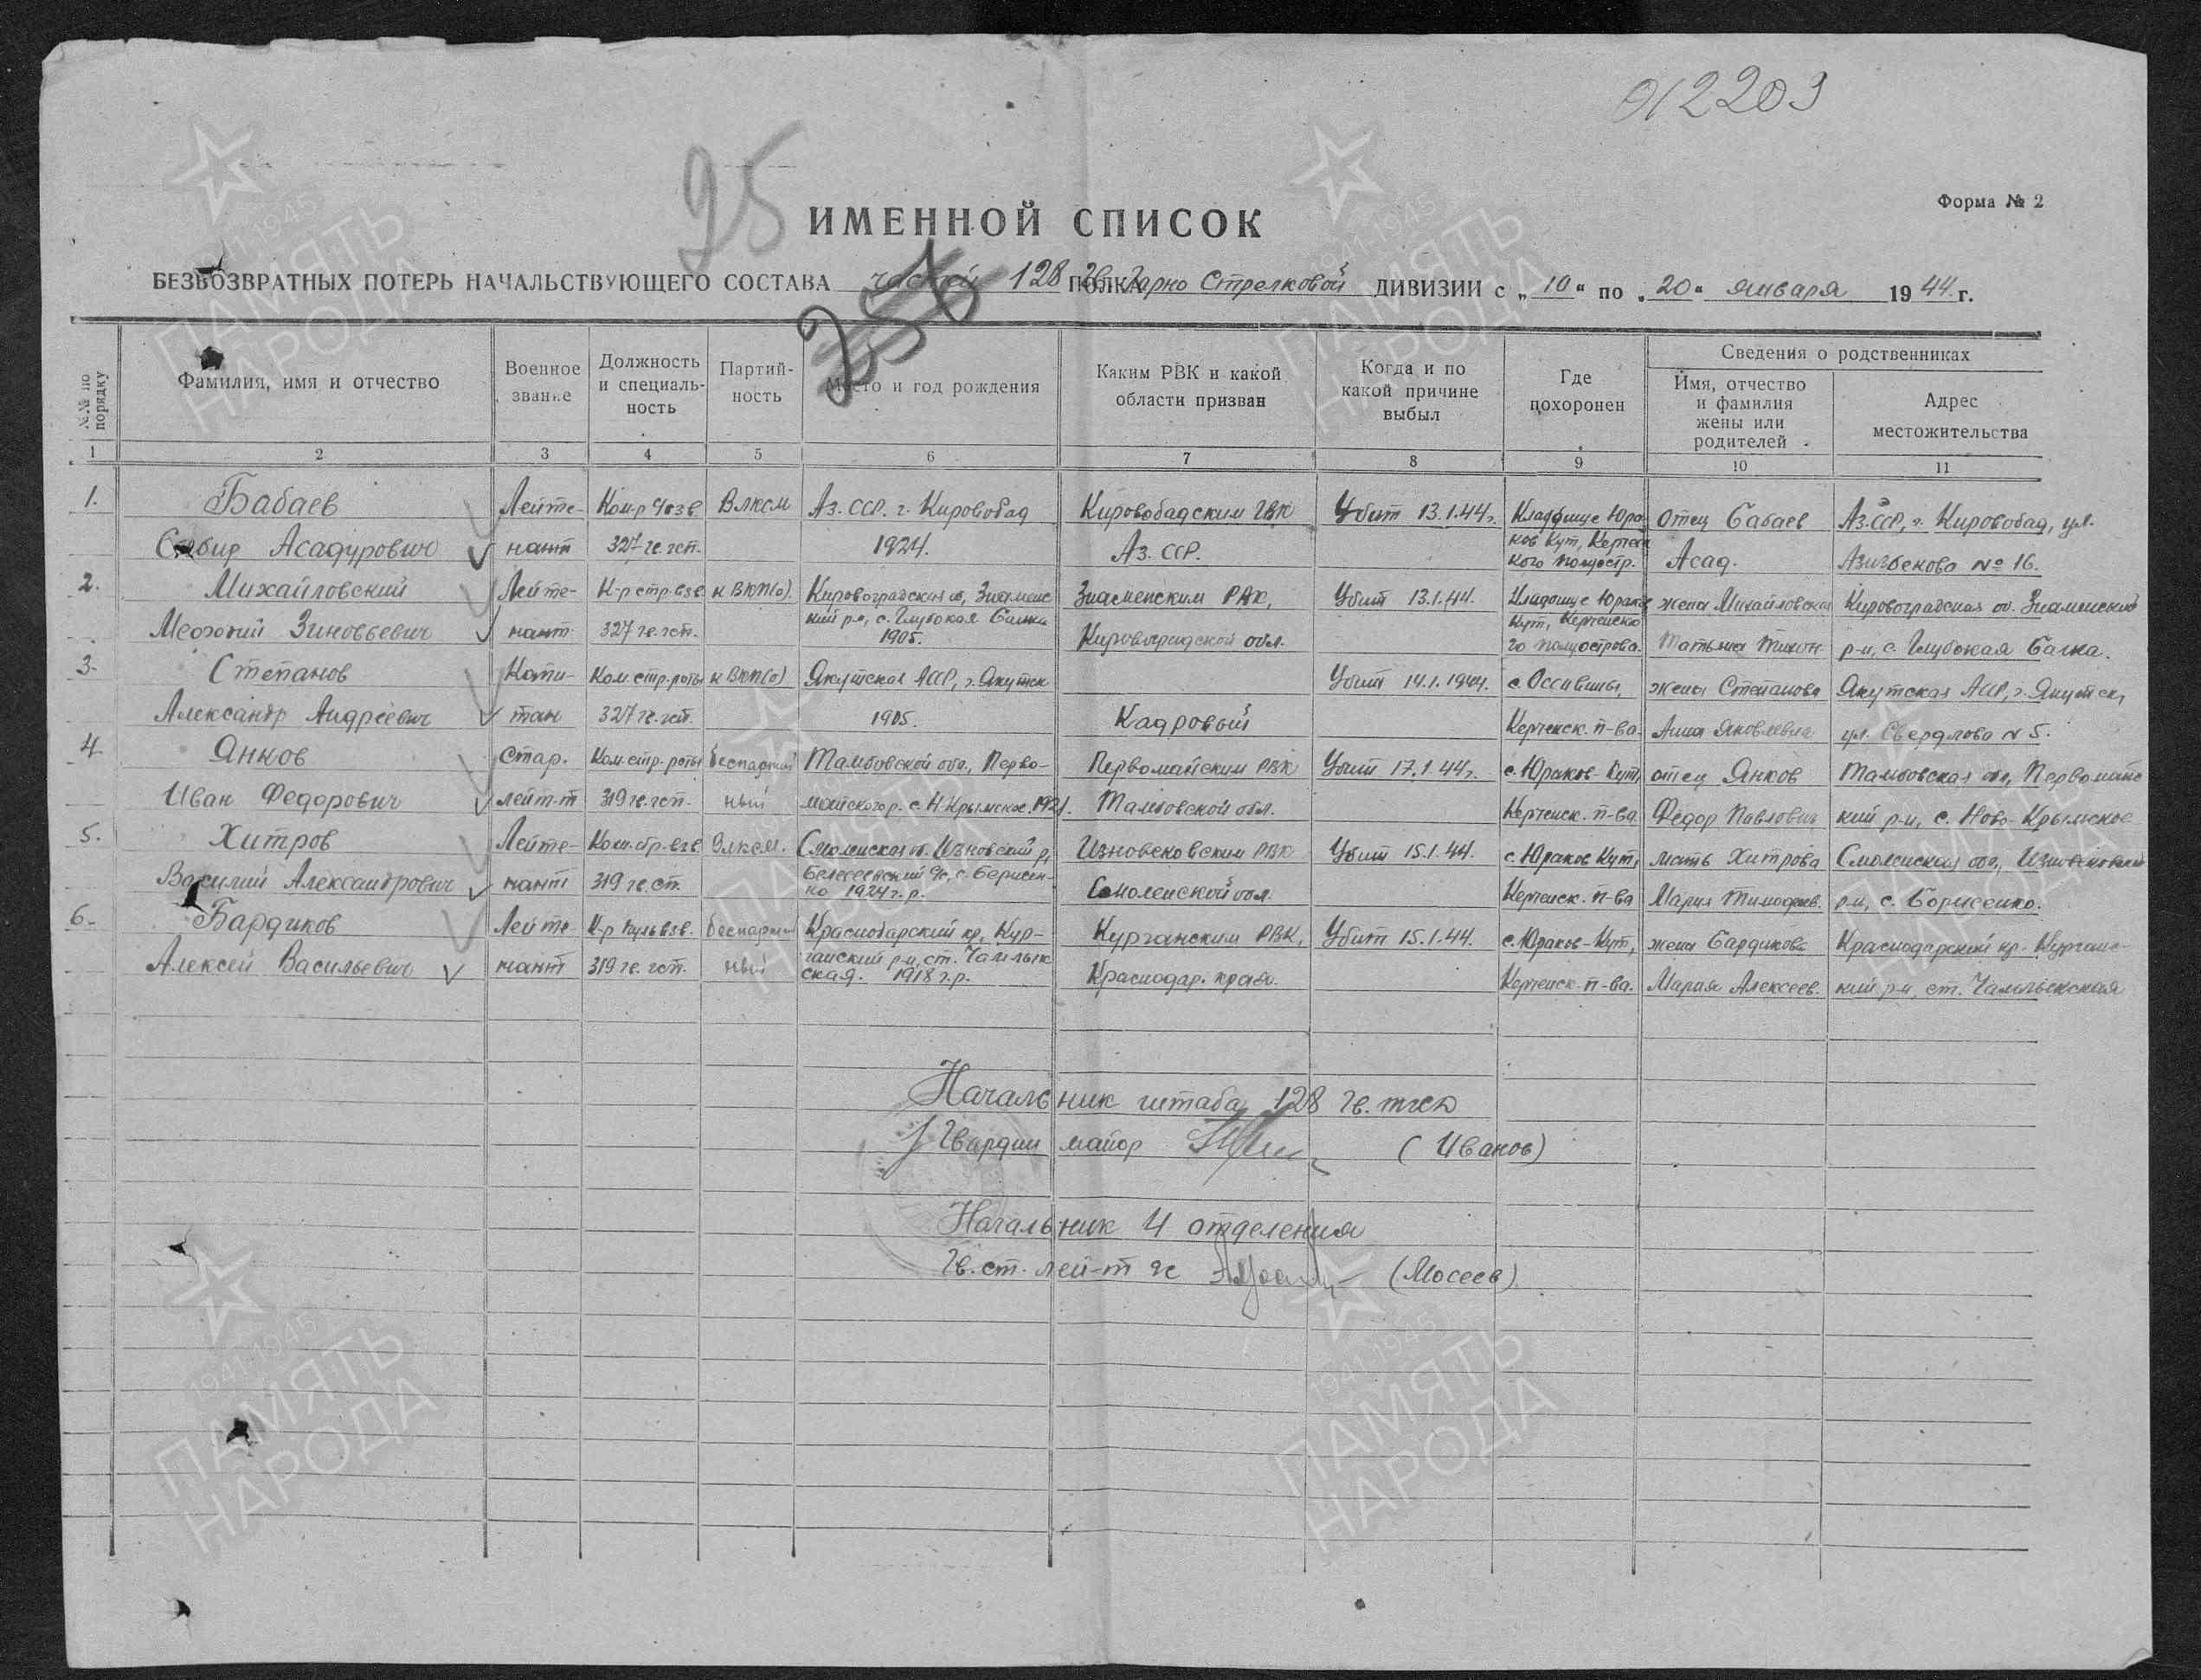 012203
25
Форма № 2
ИМЕННОЙ СПИСОК
БЕЗВОЗВРАТНЫХ ПОТЕРЬ НАЧАЛЬСТВУЮЩЕГО СОСТАВА частей 128 ПОЛКА Гв. Горно Стрелковой ДИВИЗИИ с „10“ по „20“ января 1944 г.
№№ по порядку
Фамилия, имя и отчество
Военное звание
Должность и специальность
Партийность
Место и год рождения
Каким РВК и какой области призван
Когда и по какой причине выбыл
Где похоронен
Сведения о родственниках
Имя, отчество и фамилия жены или родителей
Адрес местожительства
1 2 3 4 5 6 7 8 9 10 11
1. Бабаев Лейте- Ком-р взв Влксм Аз. ССР. г. Кировобад Кировобадским ГВК Убит 13.1.44г. Кладбище Юра- Отец Бабаев Аз.ССР, г. Кировобад, ул.
Асадурович нант 327 гв. гсп. 1924. Аз. ССР. ков Кут, Керченс
кого полуостр. Асад. Азизбекова № 16.
2. Михайловский Лейте- К-р стр. взв к ВКП(б). Кировоградская об, Знаменс Знаменским РВК, Убит 13.1.44. Кладбище Юраков жена Михайловская Кировоградская об. Знаменский
кий р-н, с. Глубокая Балка Кут, Керченско
Зиновьевич нант 327 гв. гсп. 1905. Кировоградской обл. го полуострова. Татьяна Тихон р-н, с. Глубокая Балка.
3. Степанов Капи- Ком. стр. роты к ВКП(б) Якутская АССР, г. Якутск Убит 14.1.1944. с. Оссовины, жена Степанова Якутская АССР, г. Якутск,
Александр Андреевич тан 327 гв. гсп. 1905. Кадровый Керченск. п-ва. Анна Яковлевна ул. Свердлова № 5.
4. Янков Стар. Ком. стр. роты беспартий Тамбовской обл., Перво- Первомайским РВК Убит 17.1.44г. с. Юраков-Кут, отец Янков Тамбовская обл, Первомайс
Иван Федорович лейт-т 319 гв. гсп. ный майского р. с. Н. Крымское. 1921. Тамбовской обл. Керченск. п-ва Федор Павлович кий р-н, с. Ново-Крымское
5. Хитров Лейте- Ком. стр. взв Влксм. Смоленская об. Износковским РВК Убит 15.1.44. с. Юраков Кут, мать Хитрова Смоленская обл,
Василий Александрович нант 319 гв. сп. 1924 г. р. Смоленской обл. Керченск. п-ва Мария Тимофеев. р-н, с. Борисенко.
6. Бардиков Лейте- К-р пульвзв. беспартий Краснодарский кр, Кур- Курганским РВК, Убит 15.1.44. с. Юраков-Кут, жена Бардикова Краснодарский кр. Курганс-
ганский р-н, ст. Чамлык
Алексей Васильевич нант 319 гв. гсп. ный ская. 1918 г. р. Краснодар. края. Керченск. п-ва. Мария Алексеев. кий р-н, ст. Чамлыкская
Начальник штаба 128 гв. тгсд
Гвардии майор (Иванов)
Начальник 4 отделения
Гв. ст. лей-т ас (Мосеев)
1941-1945
ПАМЯТЬ
НАРОДА